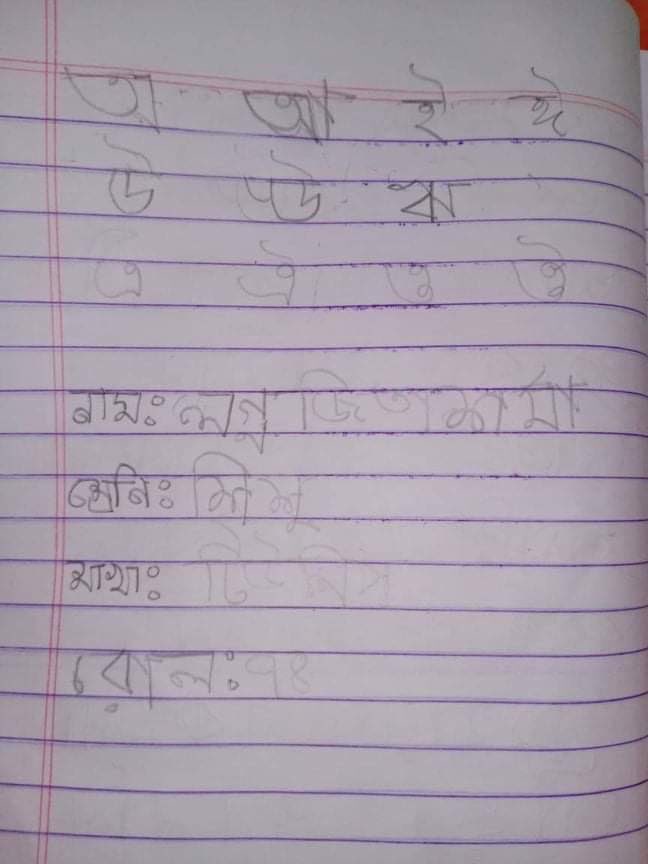 অ আ ই ঈ
উ ঊ ঋ
এ ঐ ও ঔ
নাম: লগ্ন জিতা শর্মা
শ্রেনি: শিশু
শাখা: টিউলিপ
রোল: ৭৪